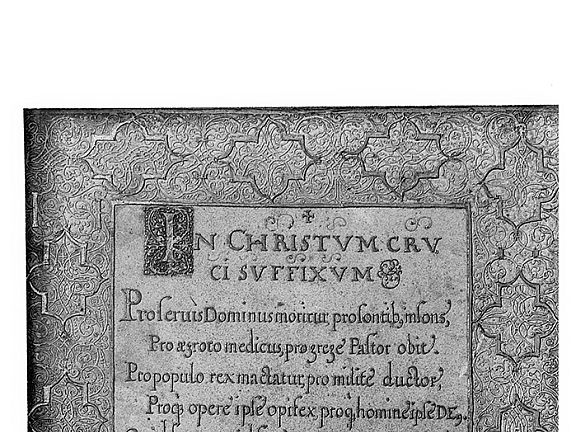 IN CHRISTVM CRV
CI SVFFIXVM
Pro seruis Dominus moritur, pro sontib, insons,
Pro ægroto medicus, pro grege Pastor obit.
Pro populo rex mactatur, pro milite ductor,
Proq opere ipse opifex, proq homine ipse DE9.